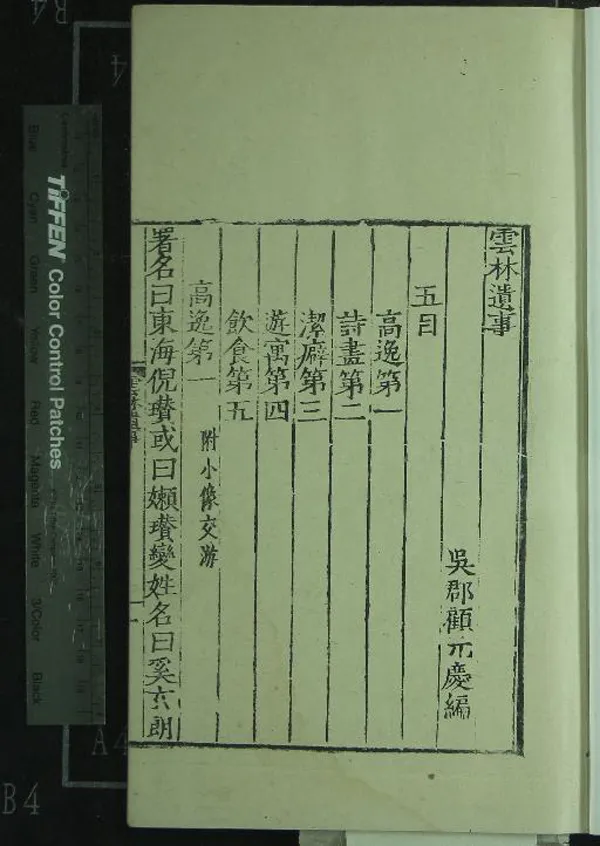 雲林遺事
吳郡顧元慶編
五目
高逸第一
詩畫第二
潔癖第三
遊寓第四
飲食第五
高逸第一 附小像交游
署名曰東海倪瓚或曰嬾瓚變姓名曰奚玄朗
TIFFEN Color Control Patches
Blue Cyan Green Yellow Red Magenta White 3/Color Black
A4
B4